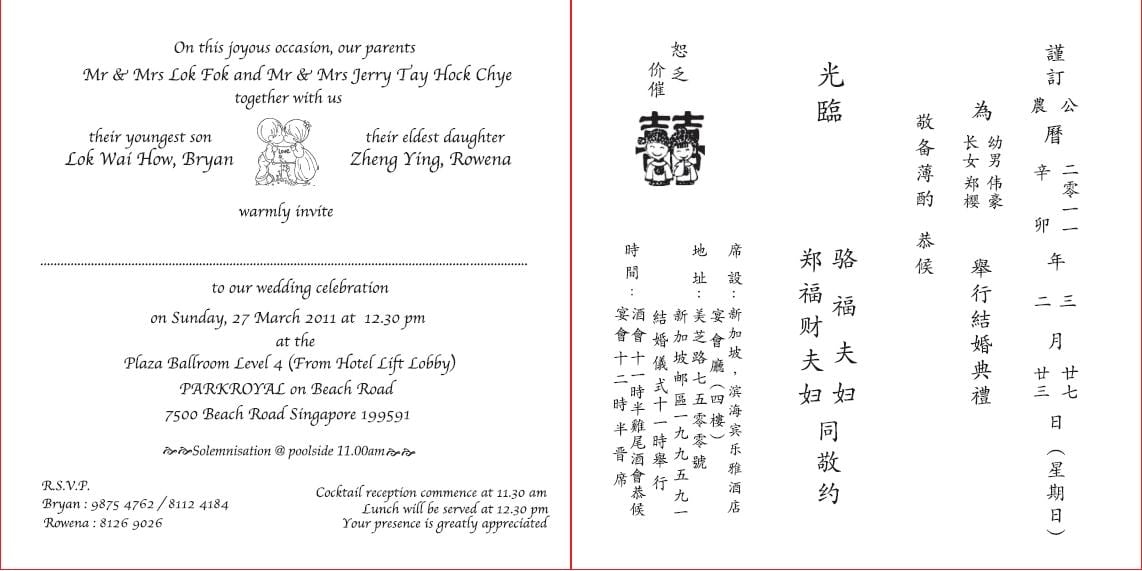 On this joyous occasion, our parents
Mr & Mrs Lok Fok and Mr & Mrs Jerry Tay Hock Chye
together with us
their youngest son
Lok Wai How, Bryan
their eldest daughter
Zheng Ying, Rowena
warmly invite
to our wedding celebration
on Sunday, 27 March 2011 at 12.30 pm
at the
Plaza Ballroom Level 4 (From Hotel Lift Lobby)
PARKROYAL on Beach Road
7500 Beach Road Singapore 199591
Solemnisation @ poolside 11.00am
R.S.V.P.
Bryan : 9875 4762 / 8112 4184
Rowena : 8126 9026
Cocktail reception commence at 11.30 am
Lunch will be served at 12.30 pm
Your presence is greatly appreciated
謹訂
公
農
曆
二零一一
辛卯
年
三
二
月
廿七
廿三
日(星期日)
為
幼男 伟豪
长女 郑樱
舉行結婚典禮
敬备薄酌 恭候
光臨
骆福夫妇
郑福财夫妇
同敬约
席設:新加坡,滨海宾乐雅酒店
宴會廳(四樓)
地址:美芝路七五零零號
新加坡邮區一九九五九一
結婚儀式十一時舉行
時間:酒會十一時半雞尾酒會恭候
宴會十二時半晋席
恕乏
价催
囍